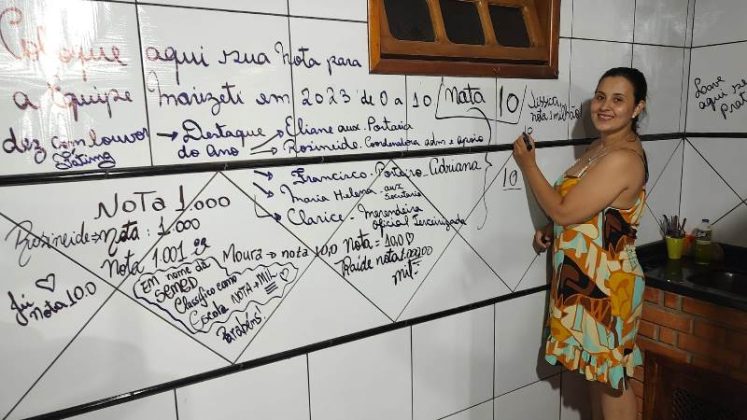 Coloque aqui sua Nota para
a Equipe Marizeti em 2023 de 0 a 10 Nata 10
dez com louvor
Jussica
nota 1 milhão
10
→ Destaque do Ano
→ Eliane aux. Portaria
→ Rosineide. Coordenadora adm e apoio
→ Francisco - Porteiro - Cidriana
→ Maria Helena - aux. Secretaria
→ Clarice - Merendeira oficial Terceirizada
10
NOTA 1.000
Rosineide → Nota: 1.000
Nota 1.001
Moura → nota 10,0
Nota = 10,0 ♡
Raide nota 1.000,00
mil
Jai ♡
Nota 10.0
Em nome da
SEMED
Classifico como
Escola NOTA + MIL ♡
Parabéns!
Lave
aqui se
prat